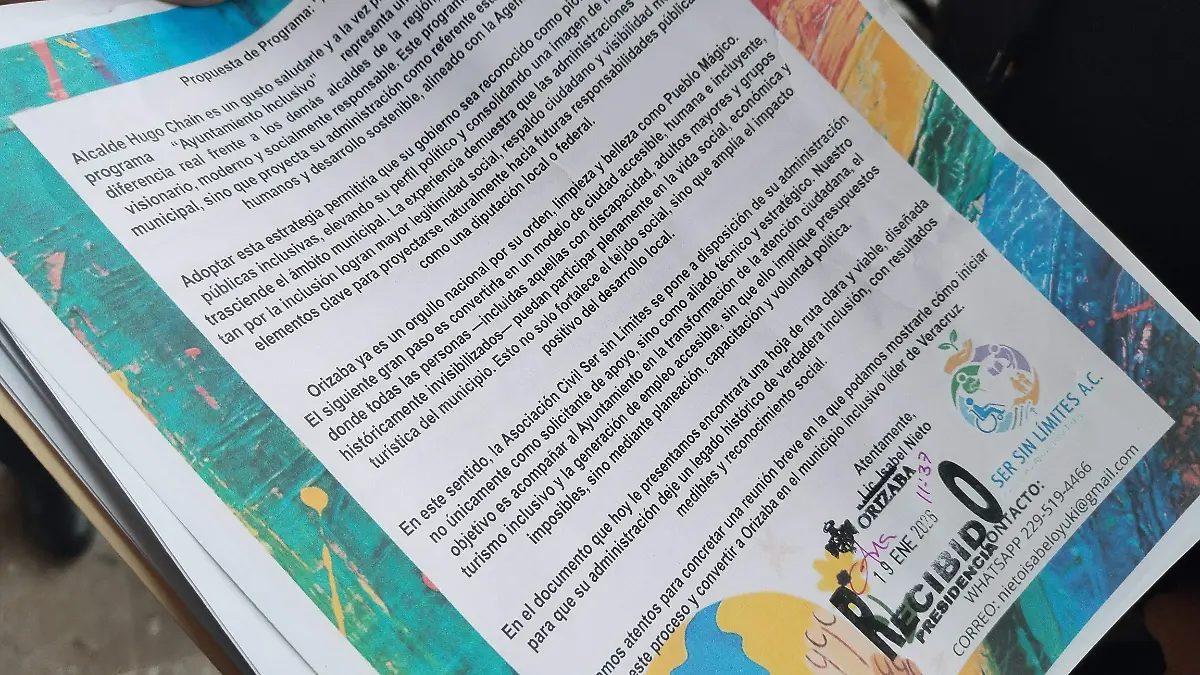 Propuesta de Programa:
Alcalde Hugo Chain es un gusto saludarle y a la vez
programa "Ayuntamiento Inclusivo" representa una
diferencia real frente a los demás alcaldes de la región
visionario, moderno y socialmente responsable. Este programa
municipal, sino que proyecta su administración como referente
humanos y desarrollo sostenible, alineado con la
Adoptar esta estrategia permitiría que su gobierno sea reconocido como
públicas inclusivas, elevando su perfil político y consolidando una imagen de
trasciende el ámbito municipal. La experiencia demuestra que las administraciones
tan por la inclusión logran mayor legitimidad social, respaldo ciudadano y visibilidad
elementos clave para proyectarse naturalmente hacia futuras responsabilidades
como una diputación local o federal.
Orizaba ya es un orgullo nacional por su orden, limpieza y belleza como Pueblo Mágico.
El siguiente gran paso es convertirla en un modelo de ciudad accesible, humana e incluyente,
donde todas las personas —incluidas aquellas con discapacidad, adultos mayores y grupos
históricamente invisibilizados— puedan participar plenamente en la vida social, económica y
turística del municipio. Esto no solo fortalece el tejido social, sino que amplía el impacto
positivo del desarrollo local.
En este sentido, la Asociación Civil Ser sin Límites se pone a disposición de su administración
no únicamente como solicitante de apoyo, sino como aliado técnico y estratégico. Nuestro
objetivo es acompañar al Ayuntamiento en la transformación de la atención ciudadana, el
turismo inclusivo y la generación de empleo accesible, sin que ello implique presupuestos
imposibles, sino mediante planeación, capacitación y voluntad política.
En el documento que hoy le presentamos encontrará una hoja de ruta clara y viable, diseñada
para que su administración deje un legado histórico de verdadera inclusión, con resultados
medibles y reconocimiento social.
atentos para concretar una reunión breve en la que podamos mostrarle cómo iniciar
este proceso y convertir a Orizaba en el municipio inclusivo líder de Veracruz.
Atentamente,
Lic. Isabel Nieto
ORIZABA
19 ENE 2026 11:37
RECIBIDO
PRESIDENCIA
SER SIN LÍMITES A.C.
CONTACTO:
WHATSAPP 229-519-4466
CORREO: nietoisabeloyuki@gmail.com